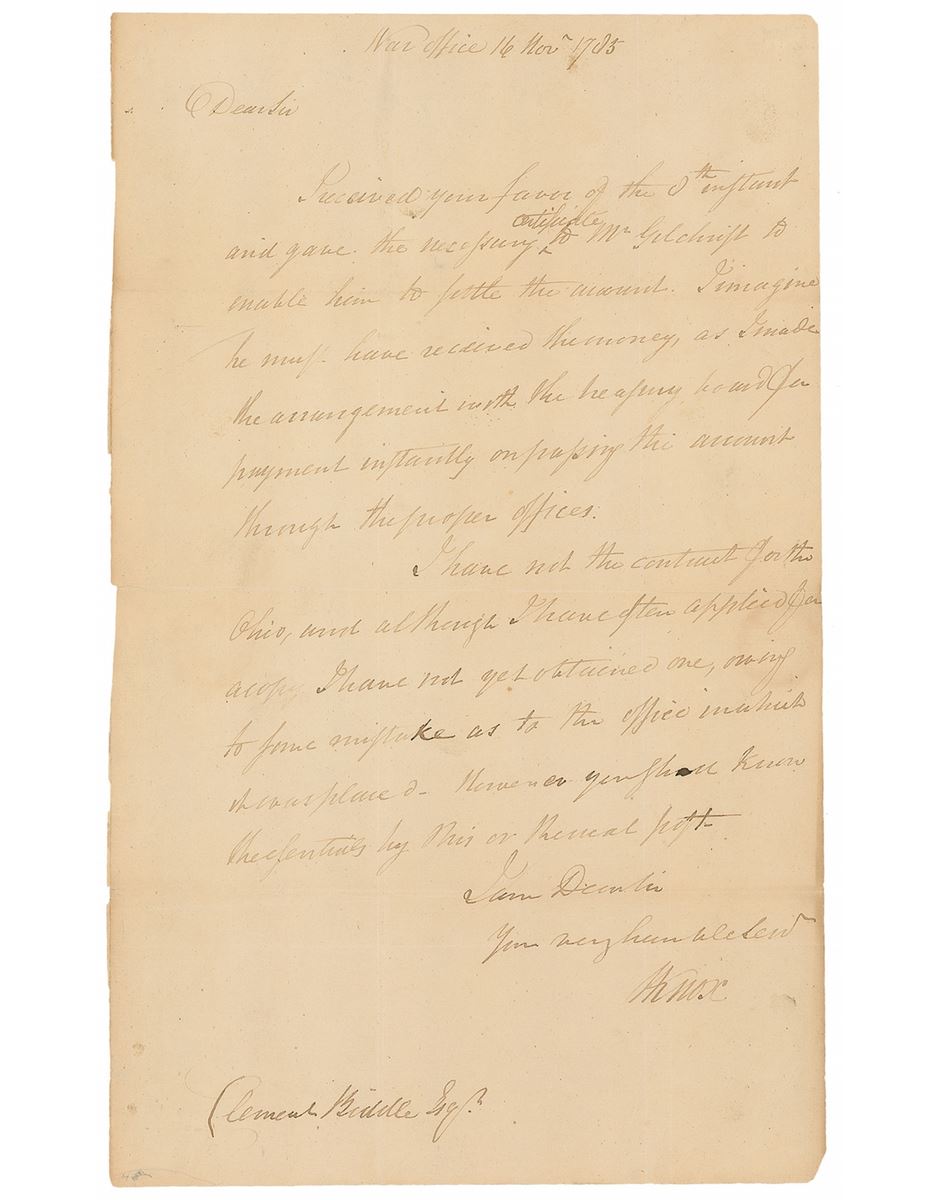 War office 16 Novr 1785
Dear Sir
I received your favor of the 8th instant
and gave the necessary certificate to Mr Gilchrist to
enable him to settle the account. I imagine
he must have received the money, as I made
the arrangement with the treasury board for
payment instantly on passing the account
through the proper offices.
I have not the contract for the
Ohio, and although I have often applied for
a copy I have not yet obtained one, owing
to some mistake as to the office in which
it was placed – However you shall know
the essentials by this or the next post
I am Dear Sir
Your very humble Servt
HKnox
Clement Biddle Esqr.